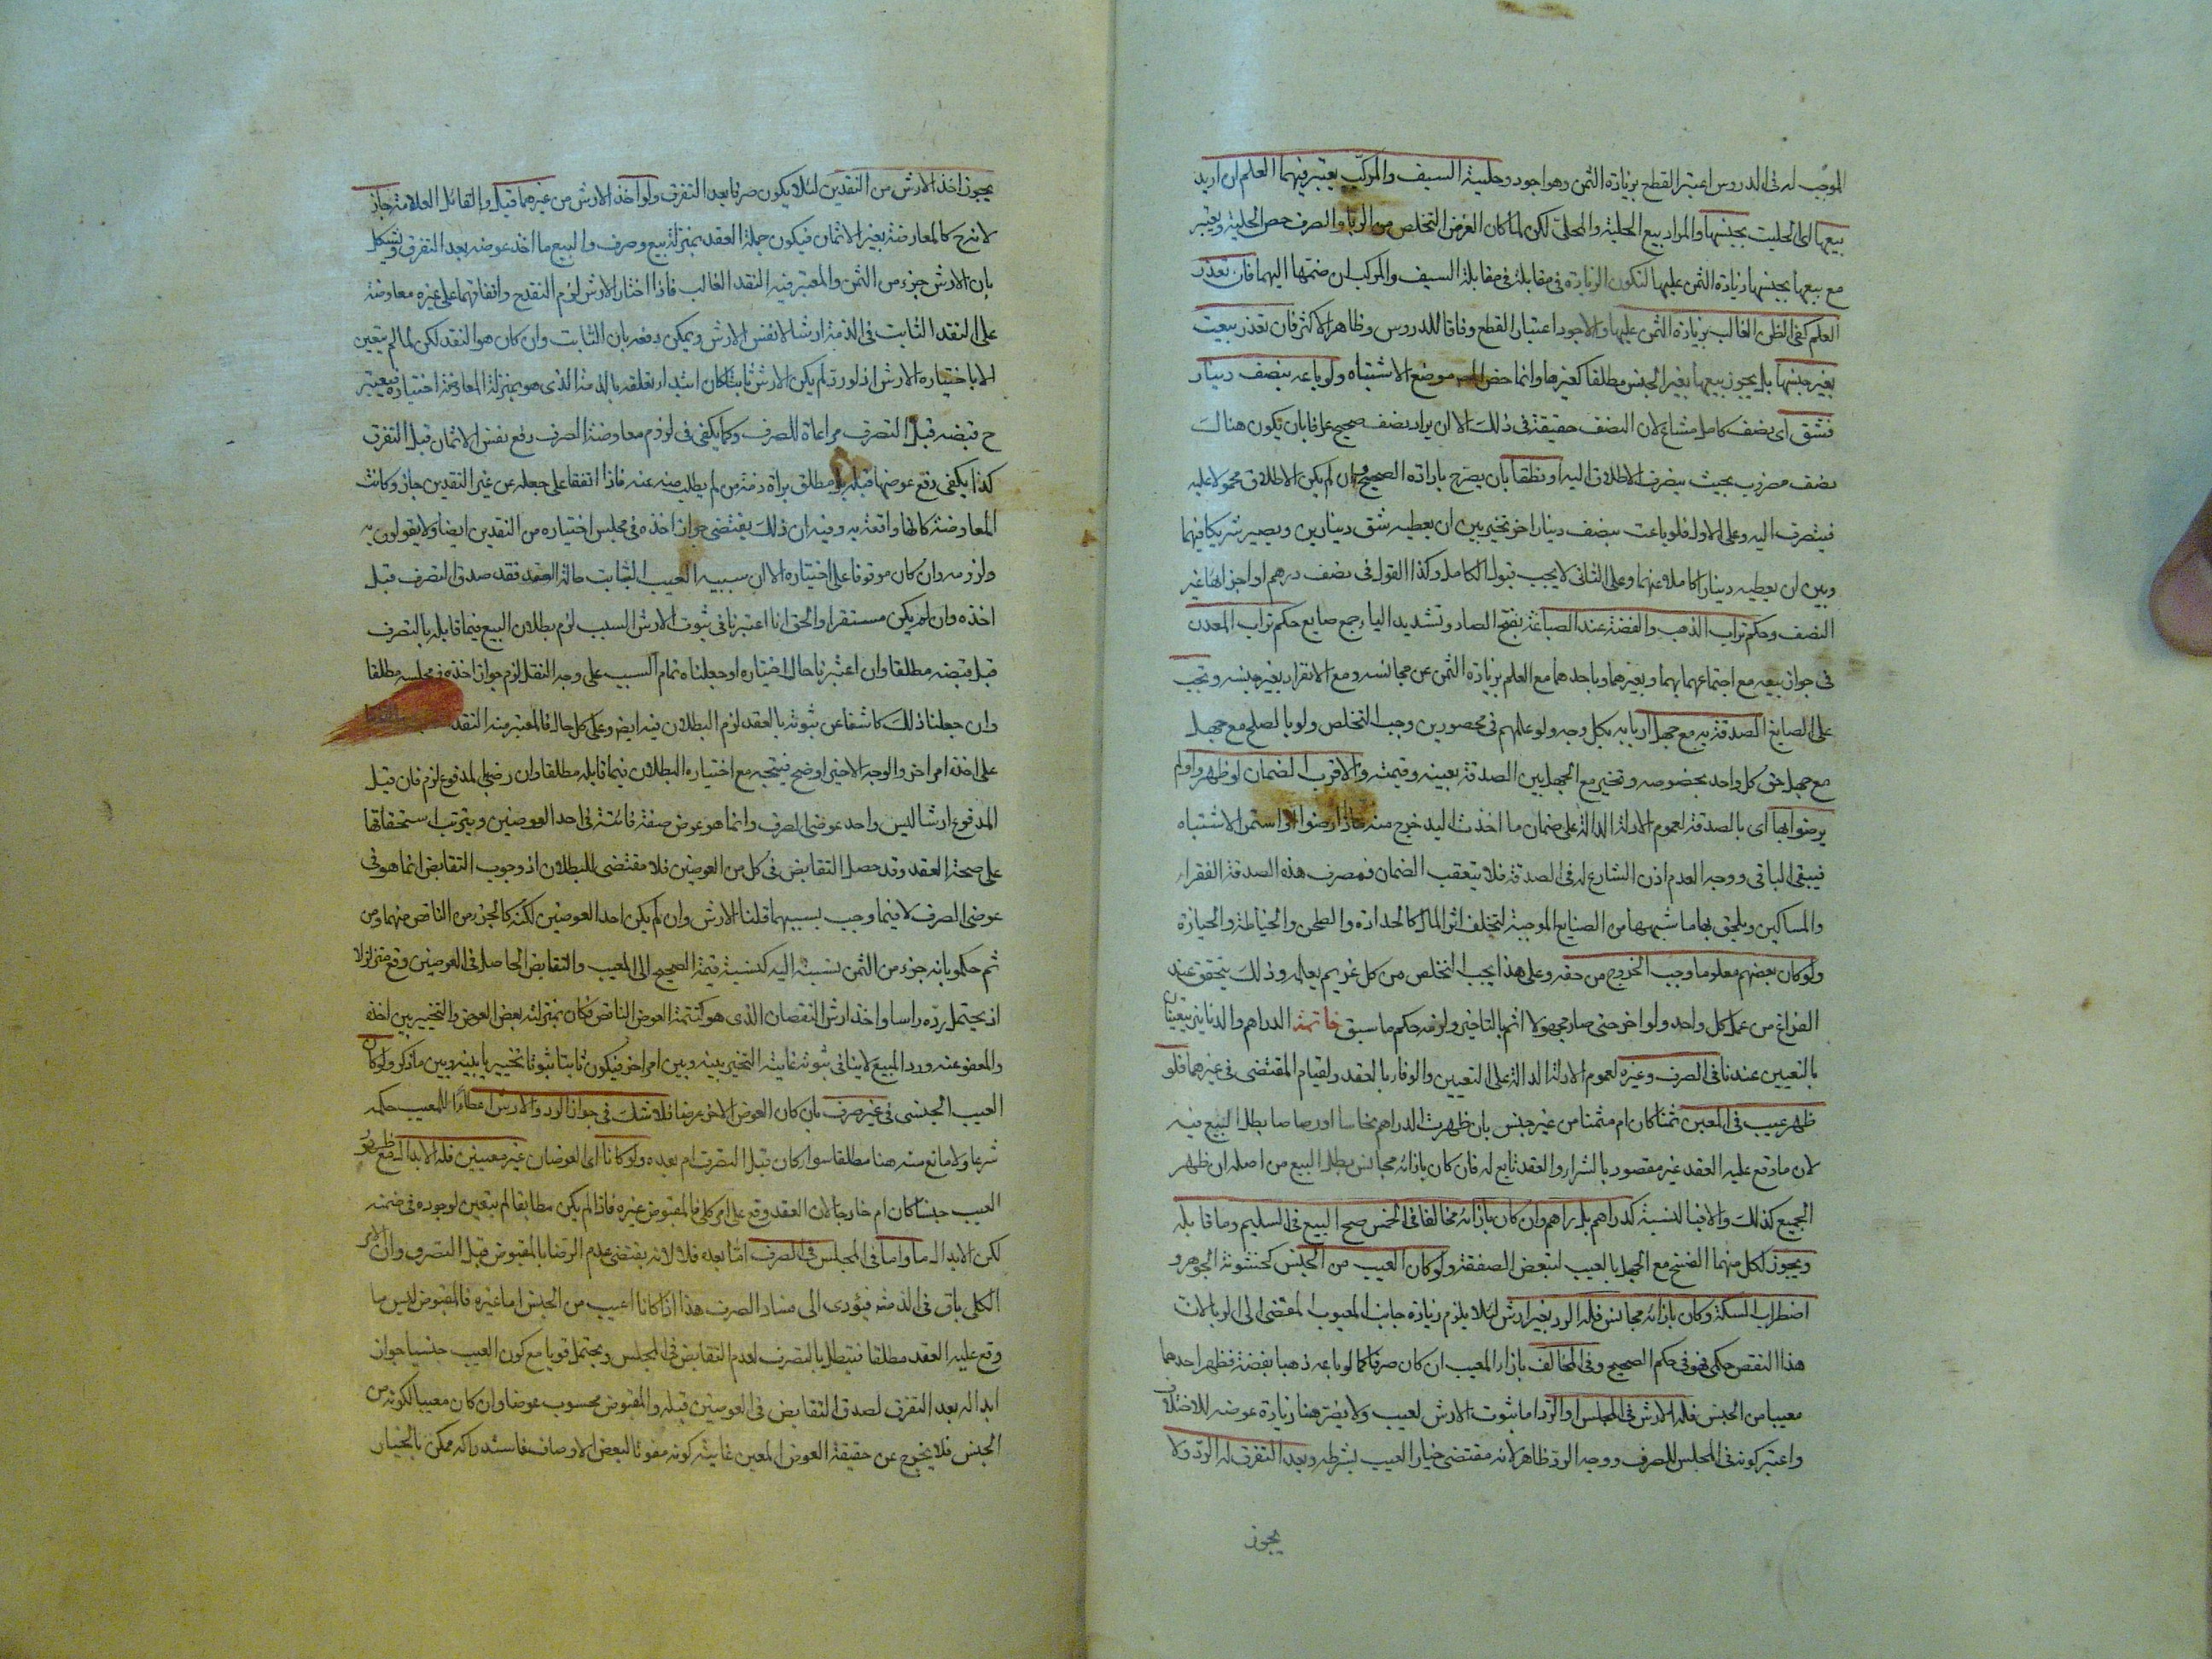 الموجب له فى الدروس اعتبر القطع بزيادة الثمن وهو اجود وحلية السيف والمركب يعتبر فيهما العلم ان اريد
بيعها اى الحلية بجنسها والمراد بيع الحلية والمحلى لكن لما كان الغرض التخلص من الربا والصرف خص الحلية ويعتبر
مع بيعها بجنسها زيادة الثمن عليها لتكون الزيادة فى مقابلة فى مقابلة السيف والمركب ان ضمتها اليهما فان تعذر
العلم كفى الظن الغالب بزيادة الثمن عليها والاجود اعتبار القطع وفاقا للدروس وظاهر الاكثر فان تعذر بيعت
بغير جنسها بل يجوز بيعها بغير الجنس مطلقا كغيرها وانما خص موضع الاشتباه ولو باعه بنصف دينار
فشق اى نصف كامل مشاع لان النصف حقيقة فى ذلك الا ان يراد نصف صحيح عرفا بان يكون هناك
نصف مضروب بحيث ينصرف الاطلاق اليه او نطقا بان يصرح بارادة الصحيح وان لم يكن الاطلاق محمولا عليه
فينصرف اليه وعلى الاول فلو باعه بنصف دينار اخر تخير بين ان يعطيه شق دينارين ويصير شريكا فيهما
وبين ان يعطيه دينارا كاملا عنهما وعلى الثانى لا يجب قبول الكامل وكذا القول فى نصف درهم او اجزائهما غير
النصف وحكم تراب الذهب والفضة عند الصياغة بفتح الصاد وتشديد الياء جمع صايغ حكم تراب المعدن
فى جواز بيعه مع اجتماعهما بهما وبغيرهما وباحدهما مع العلم بزيادة الثمن عن مجانسه ومع الانفراد بغير جنسه ويجب
على الصايغ الصدقة به مع جهل اربابه بكل وجه ولو علمهم فى محصورين وجب التخلص ولو بالصلح مع جهل
مع جهل حق كل واحد بخصوصه وتخير مع الجهل بين الصدقة بعينه وقيمته والاقرب الضمان لو ظهروا ولم
يرضوا بها اى بالصدقة لعموم الادلة الدالة على ضمان ما اخذت اليد خرج منه ما اذا رضوا او استمر الاشتباه
فيبقى الباقى ووجه العدم اذن الشارع له فى الصدقة فلا يتعقب الضمان ومصرف هذه الصدقة الفقراء
والمساكين ويلحق بها ما شبهها من الصنايع الموجبة لتخلف اثر المال كالحدادة والطحن والخياطة والخبازة
ولو كان بعضهم معلوما وجب الخروج من حقه وعلى هذا يجب التخلص من كل غريم يعلمه وذلك يتحقق عند
الفراغ من عمل كل واحد ولو اخر حتى صار مجهولا اثم بالتاخير ولزمه حكم ما سبق خاتمة الدراهم والدنانير يتعينان
بالتعيين عندنا فى الصرف وغيره لعموم الادلة الدالة على التعيين والوفاء بالعقد ولقيام المقتضى فى غيرهما فلو
ظهر عيب فى المعين ثمنا كان ام مثمنا من غير جنس بان ظهرت الدراهم نحاسا او رصاصا بطل البيع فيه
لان ما وقع عليه العقد غير مقصود بالشراء والعقد تابع له فان كان بازائه مجانس بطل البيع من اصله ان ظهر
الجميع كذلك والا فبالنسبة كدراهم بدراهم وان كان بازائه مخالفا فى الجنس صح البيع فى السليم وما قابله
ويجوز لكل منهما الفسخ مع الجهل بالعيب لتبعض الصفقة ولو كان العيب من الجنس كخشونة الجوهر و
اضطراب السكة وكان بازائه مجانس فله الرد بغير ارش لئلا يلزم زيادة جانب المعيوب المقتضى الى الربا لان
هذا النقص حكمى فهو فى حكم الصحيح وفى المخالف بازاء المعيب ان كان صرفا كما لو باعه ذهبا بفضة فظهر احدهما
معيبا من الجنس فله الارش فى المجلس او الرد اما ثبوت الارش لعيب ولا يضر هنا زيادة عوضه للاختلاف
واعتبر كونه فى المجلس للصرف ووجه الرد ظاهر لانه مقتضى خيار العيب بشرطه وبعد التفرق له الرد ولا
يجوز
يجوز اخذ الارش من النقدين لئلا يكون صرفا بعد التفرق ولو اخذ الارش من غيرهما قيل والقائل العلامة جاز
لانه ح كالمعاوضة بغير الاثمان فيكون جملة العقد بمنزلة بيع وصرف والبيع ما اخذ عوضه بعد التفرق ويشكل
بان الارش جزء من الثمن والمعتبر فيه النقد الغالب فاذا اختار الارش لزم النقد ح واتفاقهما على غيره معاوضة
على النقد الثابت فى الذمة ارشا لا نفس الارش ويمكن دفعه بان الثابت وان كان هو النقد لكن لما لم يتعين
الا باختياره الارش اذ لو رد لم يكن الارش ثابتا كان ابتداء تعلقه بالذمة الذى هو بمنزلة المعاوضة اختياره فيعتبر
ح قبضه قبل التصرف مراعاة للصرف وكما يكفى فى لزوم معاوضة الصرف دفع نفس الاثمان قبل التفرق
كذا يكفى دفع عوضها قبله بل مطلق براءة ذمة من لم يطلب منه عنه فاذا اتفقا على جعله عن غير النقدين جاز وكانت
المعاوضة كانها واقعة به وفيه ان ذلك يقتضى جواز اخذه فى مجلس اختياره من النقدين ايضا ولا يقولون به
ولزومه وان كان موقوفا على اختياره الا ان سببه العيب الثابت حالة العقد فقد صدق التصرف قبل
اخذه وان لم يكن مستقرا والحق انا اعتبرنا فى ثبوت الارش السبب لزم بطلان البيع فيما قابله بالتصرف
قبل قبضه مطلقا وان اعتبرنا حال اختياره او جعلناه تمام السبب على وجه النقل لزم جواز اخذه فى مجلسه مطلقا
وان جعلنا ذلك كاشفا عن ثبوته بالعقد لزم البطلان فيه ايض وعلى كل حال فالمعتبر منه النقد
على اخذه امر اخر والوجه الاخير اوضح فيتجه مع اختياره البطلان فيما قابله مطلقا وان رضى بالمدفوع لزم فان قيل
المدفوع ارشا ليس واحد عوضى الصرف وانما هو عوض صفة فائتة فى احد العوضين ويترتب استحقاقها
على صحة العقد وقد حصل التقابض فى كل من العوضين فلا مقتضى للبطلان اذ وجوب التقابض انما هو فى
عوضى الصرف لا فيما وجب بسببهما قلنا الارش وان لم يكن احد العوضين لكنه كالجزء من الناقص منهما ومن
ثم حكموا بانه جزء من الثمن نسبته اليه كنسبة قيمة الصحيح الى المعيب والتقابض الحاصل فى العوضين وقع متزلزلا
اذ يحتمل رده راسا واخذ ارش النقصان الذى هو كتتمة العوض الناقص فكان بمنزلة بعض العوض والتخيير بين اخذه
والعفو عنه ورد المبيع لا ينافى ثبوته غايته التخير بينه وبين امر اخر فيكون ثابتا ثبوتا تخييريا بينه وبين ما ذكر ولو كان
العيب الجنسى فى غير صرف بان كان العوض الاخر عرضا فلا شك فى جواز الرد والارش اعطاء للمعيب حكمه
شرعا ولا مانع منه هنا مطلقا سواء كان قبل التصرف ام بعده ولو كانا اى العوضان غير معينين فله الابدال مع ظهور
العيب جنسا كان ام خارجا لان العقد وقع على امر كلى فالمقبوض غيره فاذا لم يكن مطابقا لم يتعين لوجوده فى ضمنه
لكن الابدال ما داما فى المجلس فى الصرف اما بعده فلا لانه يقتضى عدم الرضا بالمقبوض قبل التصرف وان الامر
الكلى باق فى الذمة فيؤدى الى فساد الصرف هذا اذا كانا العيب من الجنس اما غيره فالمقبوض ليس ما
وقع عليه العقد مطلقا فيبطل بالتصرف لعدم التقابض فى المجلس ويحتمل قويا مع كون العيب جنسيا جواز
ابداله بعد التفرق لصدق التقابض فى العوضين قبله والمقبوض محسوب عوضا وان كان معيبا لكونه من
الجنس فلا يخرج عن حقيقة العوض المعين غايته كونه مفوتا لبعض الاوصاف فاستدراكه ممكن بالخيار